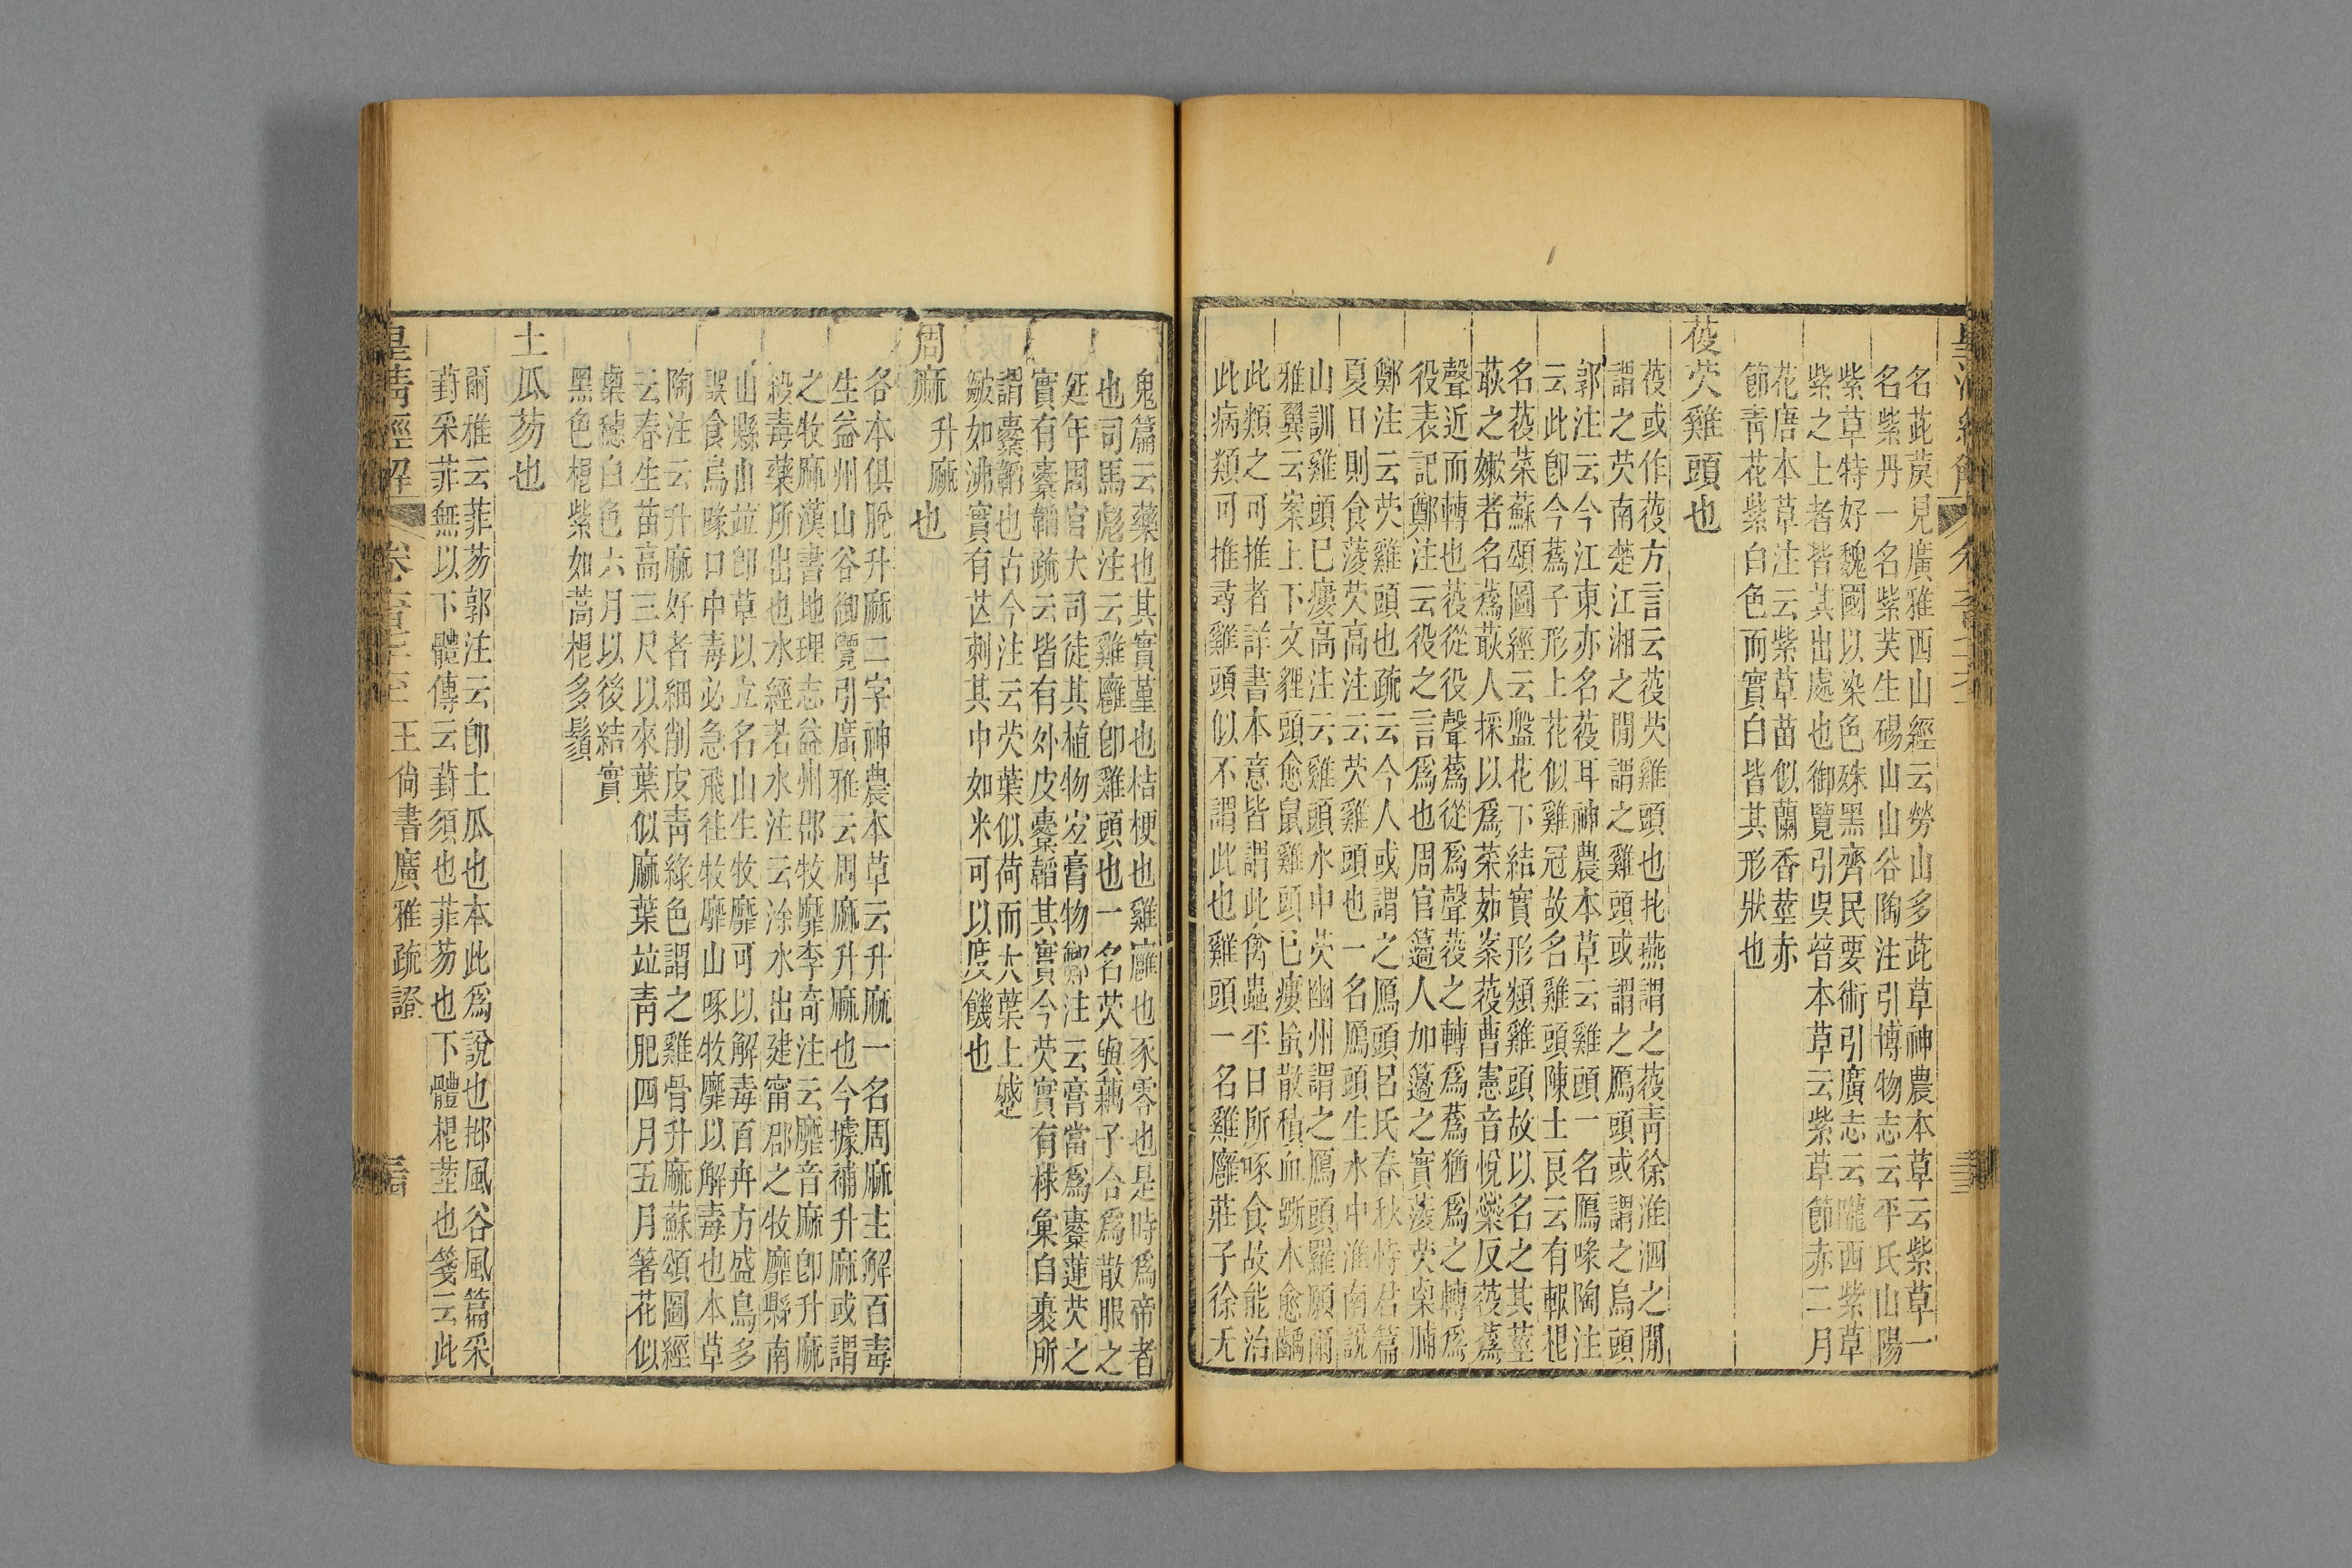 名茈䓞見廣雅西山經云勞山多茈草神農本草云紫草一
名紫丹一名紫芙生碭山山谷陶注引博物志云平氏山陽
紫草特好魏國以染色殊黑齊民要術引廣志云隴西紫草
紫之上者皆其出處也御覽引吳普本草云紫草節赤二月
花唐本草注云紫草苗似蘭香莖赤
節青花紫白色而實白皆其形狀也
䓈芡雞頭也
䓈或作䓈方言云䓈芡雞頭也北燕謂之䓈青徐淮泗之閒
謂之芡南楚江湘之閒謂之雞頭或謂之鴈頭或謂之烏頭
郭注云今江東亦名䓈耳神農本草云雞頭一名鴈喙陶注
云此卽今蔿子形上花似雞冠故名雞頭陳士良云有軟根
名䓈菜蘇頌圖經云盤花下結實形類雞頭故以名之其莖
蔌之嫰者名蔿蔌人採以爲菜茹案䓈曹憲音悅藥反䓈蔿
聲近而轉也䓈從役聲蔿從爲聲䓈之轉爲蔿猶爲之轉爲
役表記鄭注云役之言爲也周官籩人加籩之實蔆芡㮚脯
鄭注云芡雞頭也疏云今人或謂之鴈頭呂氏春秋恃君篇
夏日則食蔆芡高注云芡雞頭也一名鴈頭生水中淮南說
山訓雞頭已瘻高注云雞頭水中芡幽州謂之鴈頭羅願爾
雅翼云案上下文貍頭愈鼠雞頭已瘻蝱散積血斲木愈齲
此類之可推者詳書本意皆謂此禽蟲平日所啄食故能治
此病類可推尋雞頭似不謂此也雞頭一名雞廱莊子徐无
鬼篇云藥也其實堇也桔梗也雞廱也豕零也是時爲帝者
也司馬彪注云雞廱卽雞頭也一名芡與藕子合爲散服之
延年周官大司徒其植物宐膏物鄭注云膏當爲櫜蓮芡之
實有櫜韜疏云皆有外皮櫜韜其實今芡實有梂彙自裹所
謂櫜韜也古今注云芡葉似荷而大葉上蹙
皺如沸實有芒刺其中如米可以度饑也
周麻升麻也
各本俱脫升麻二字神農本草云升麻一名周麻主解百毒
生益州山谷御覽引廣雅云周麻升麻也今據補升麻或謂
之牧麻漢書地理志益州郡牧靡李奇注云靡音麻卽升麻
殺毒藥所出也水經若水注云涂水出建甯郡之牧靡縣南
山縣山竝卽草以立名山生牧靡可以解毒百卉方盛烏多
誤食烏喙口中毒必急飛往牧靡山啄牧靡以解毒也本草
陶注云升麻好者細削皮青綠色謂之雞骨升麻蘇頌圖經
云春生苗高三尺以來葉似麻葉竝青肥四月五月箸花似
粟穗白色六月以後結實
黑色根紫如蒿根多鬚
土瓜芴也
爾雅云菲芴郭注云卽土瓜也本此爲說也邶風谷風篇采
葑采菲無以下體傳云葑須也菲芴也下體根莖也箋云此
皇清經解 卷 王尙書廣雅疏證